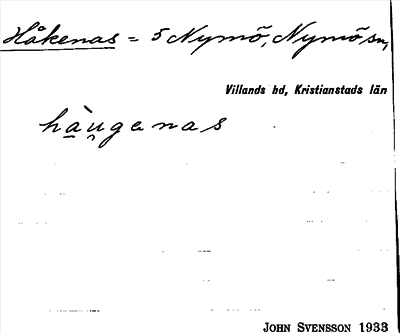 Håkenas = 5 Nymö, Nymö sn,
Villands hd, Kristianstads län
hà̱u̯genas
JOHN SVENSSON 1933